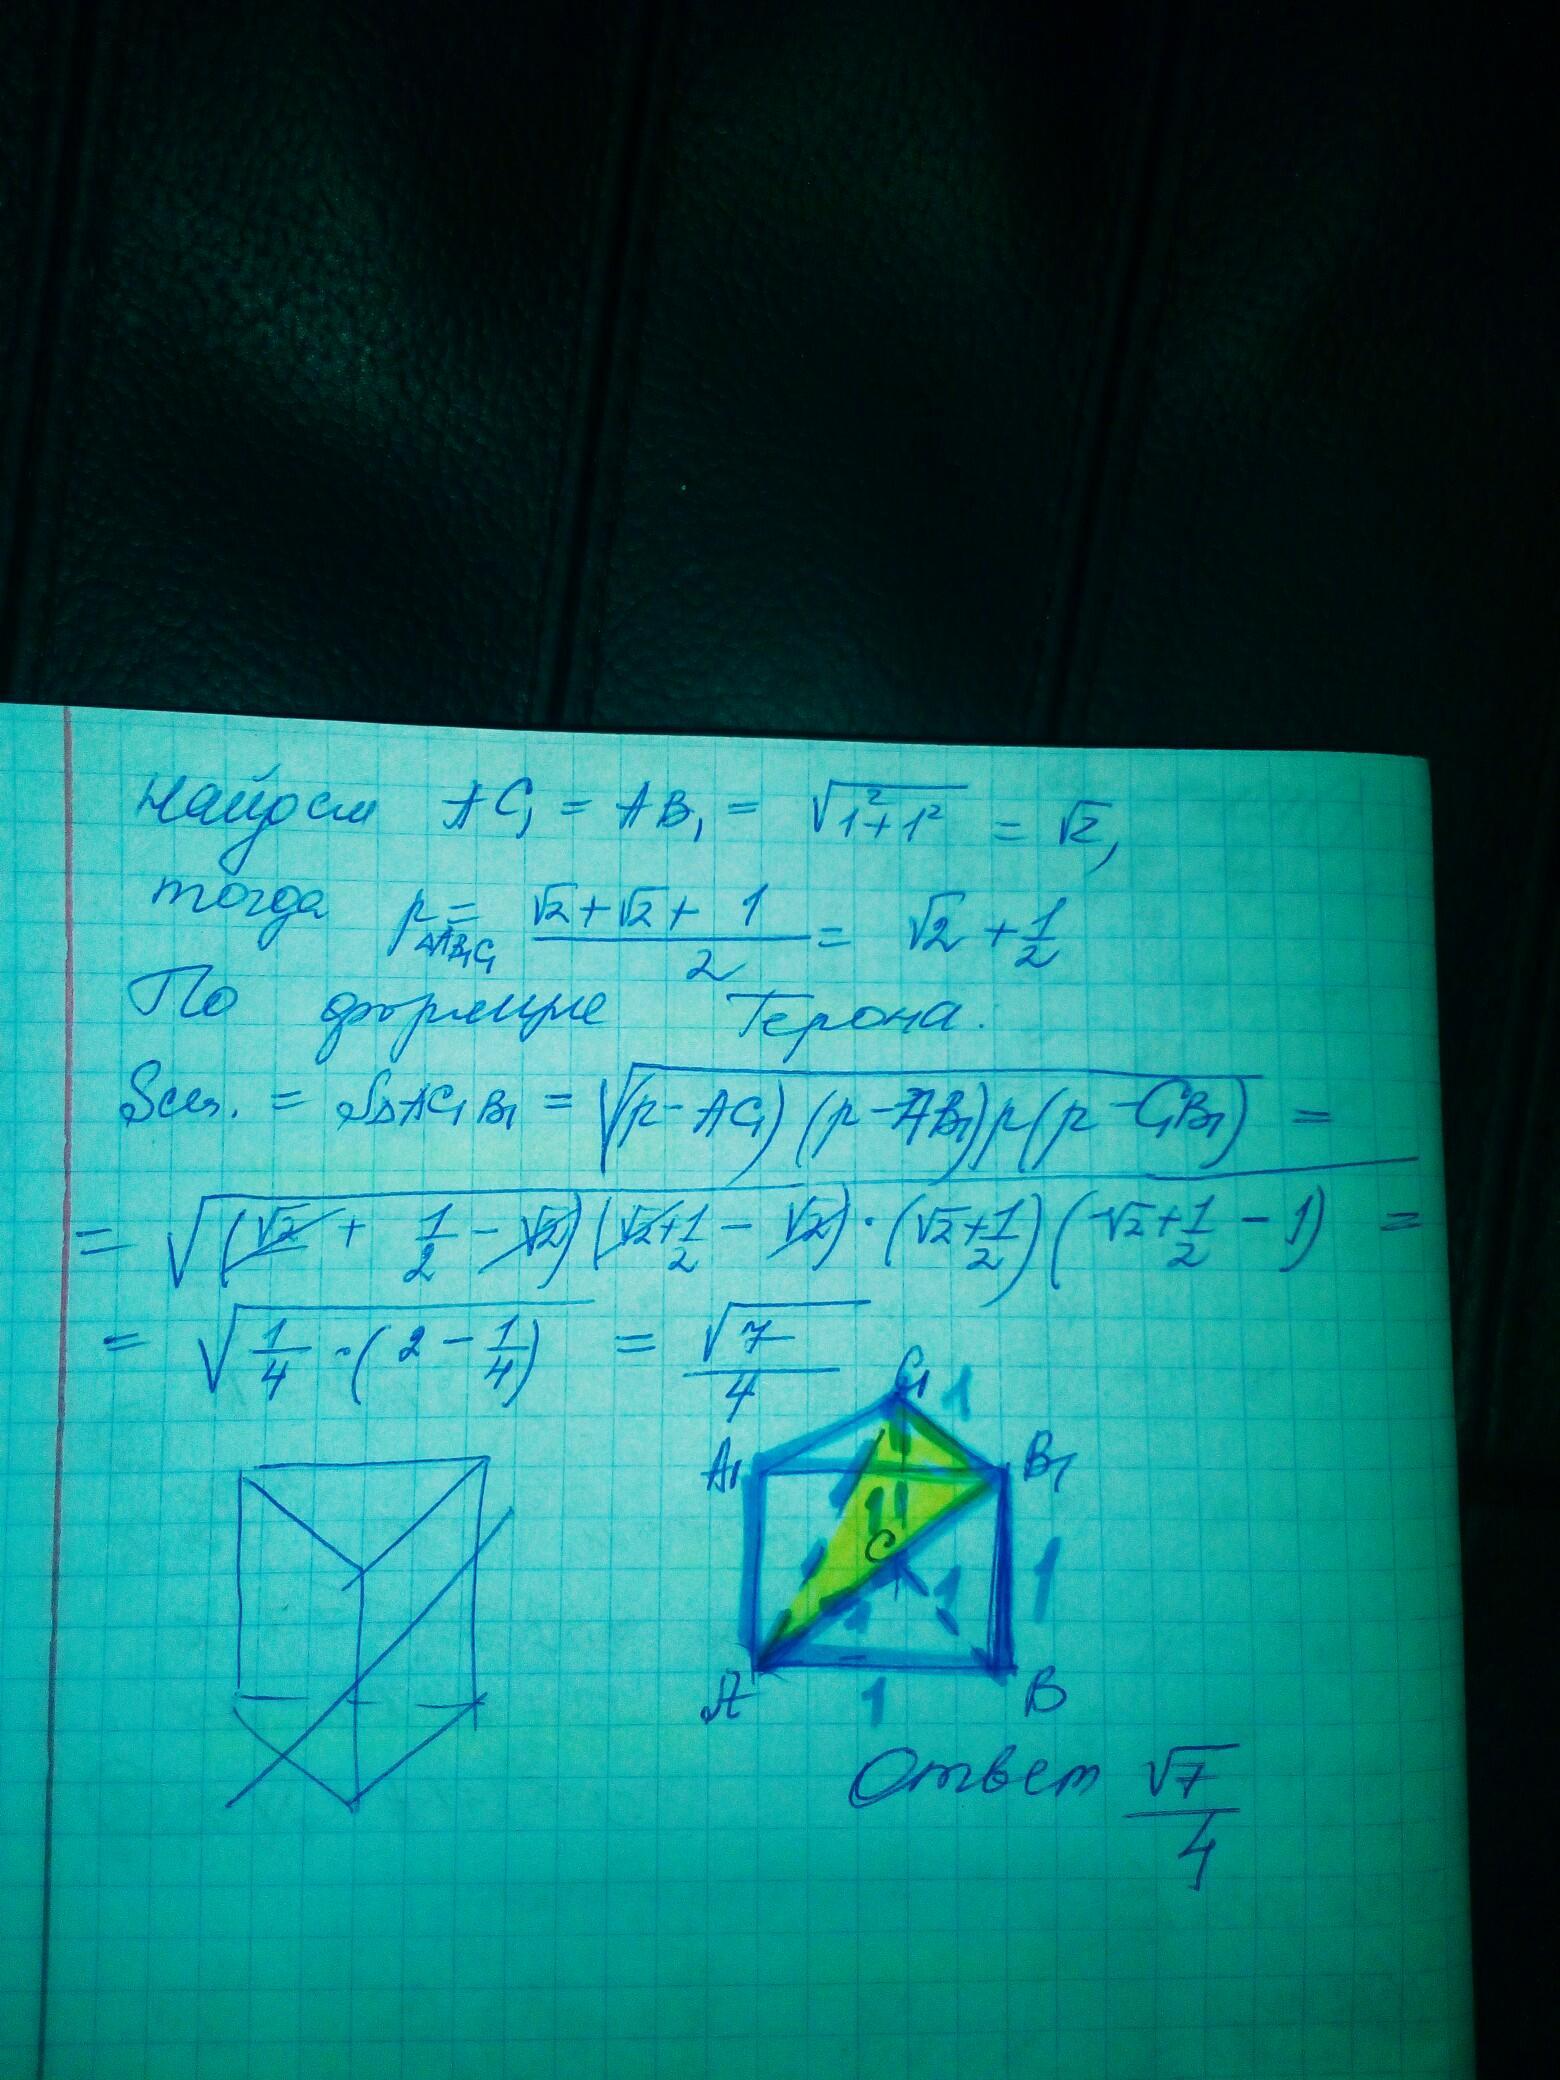 Найдем AC₁ = AB₁ = √(1²+1²) = √2,
тогда p ΔAB₁C₁ = (√2+√2+1)/2 = √2 + 1/2
По формуле Герона.
Sсеч. = SΔAC₁B₁ = √((p-AC₁)(p-AB₁)p(p-C₁B₁)) =
= √((√2 + 1/2 - √2)(√2+1/2 - √2)·(√2+1/2)(√2+1/2 - 1)) =
= √(1/4 ·(2 - 1/4)) = √7/4
C₁ 1
A₁ B₁
1
C
1 1 1
A 1 B
Ответ √7/4